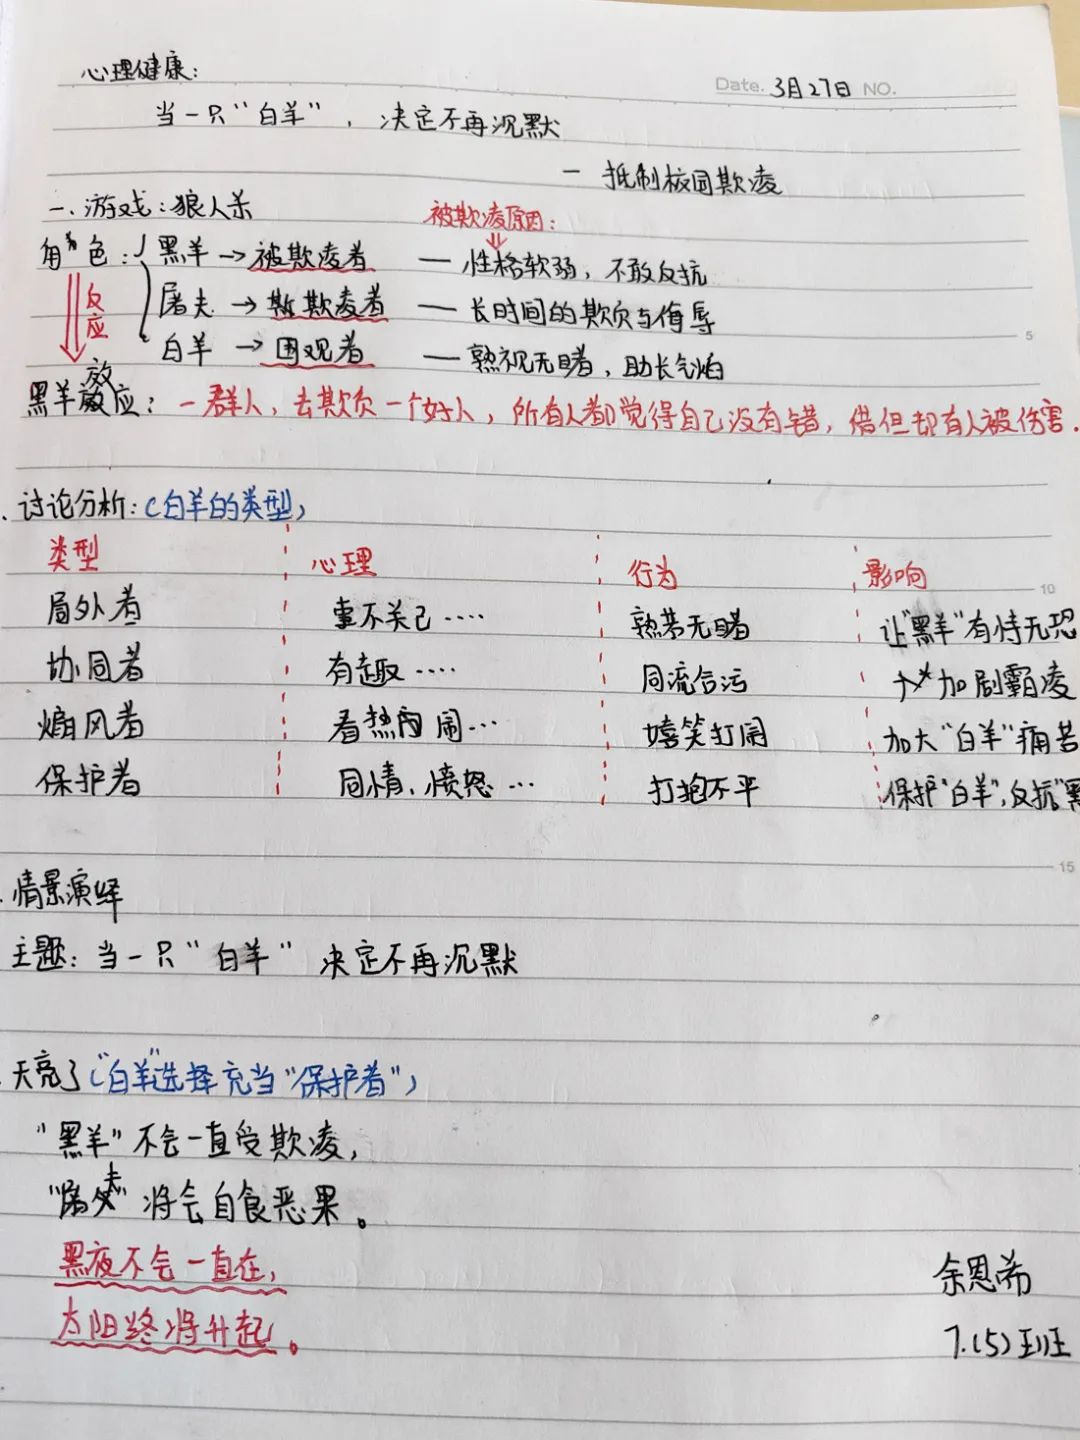 心理健康:
Date. 3月27日 NO.
当一只“白羊”，决定不再沉默
— 抵制校园欺凌
一. 游戏:狼人杀
被欺凌原因:
角色: 黑羊→被欺凌者 — 性格软弱，不敢反抗
反应
屠夫→欺凌者 — 长时间的欺负与侮辱
5
白羊→围观者 — 熟视无睹，助长气焰
黑羊效应: 一群人，去欺负一个好人，所有人都觉得自己没有错，但却有人被伤害.
讨论分析:(白羊的类型)
类型 心理 行为 影响
10
局外者 事不关己···· 熟若无睹 让“黑羊”有恃无恐
协同者 有趣···· 同流合污 加剧霸凌
煽风者 看热闹··· 嬉笑打闹 加大“白羊”痛苦
保护者 同情、愤怒··· 打抱不平 保护“白羊”，反抗“黑
15
情景演绎
主题: 当一只“白羊” 决定不再沉默
天亮了(“白羊”选择充当“保护者”)
“黑羊”不会一直受欺凌，
“屠夫”将会自食恶果。
黑夜不会一直在，
太阳终将升起。
余恩希
7.(5)班